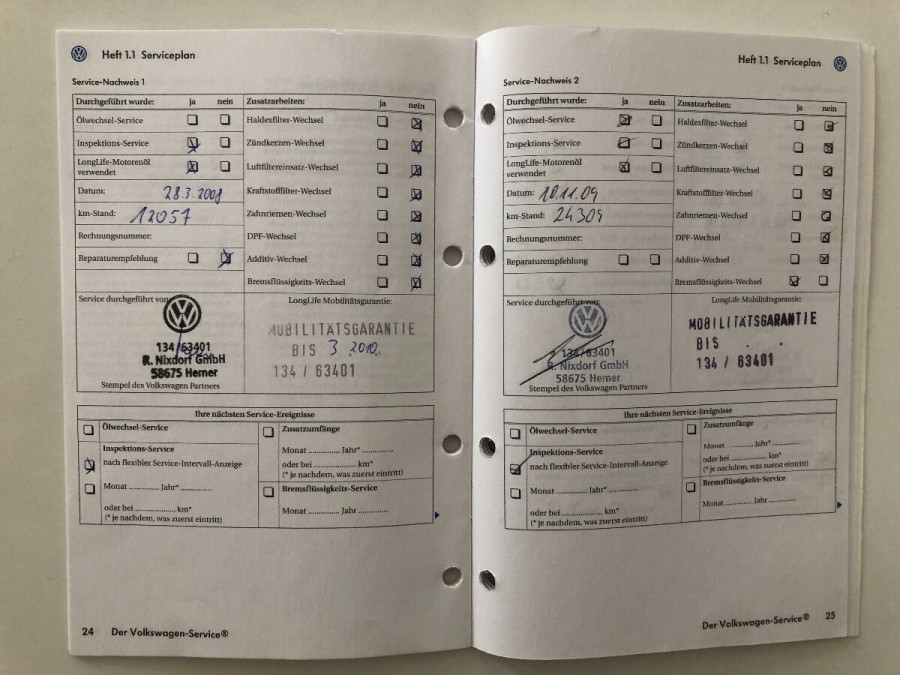 Heft 1.1 Serviceplan
Service-Nachweis 1
Durchgeführt wurde: ja nein
Ölwechsel-Service
Inspektions-Service
LongLife-Motorenöl
verwendet
Datum: 28.3.2008
km-Stand: 12057
Rechnungsnummer:
Reparaturempfehlung
Zusatzarbeiten: ja nein
Haldexfilter-Wechsel
Zündkerzen-Wechsel
Luftfiltereinsatz-Wechsel
Kraftstofffilter-Wechsel
Zahnriemen-Wechsel
DPF-Wechsel
Additiv-Wechsel
Bremsflüssigkeits-Wechsel
Service durchgeführt von:
134/63401
R. Nixdorf GmbH
58675 Hemer
Stempel des Volkswagen Partners
LongLife Mobilitätsgarantie:
MOBILITÄTSGARANTIE
BIS 3 2010
134 / 63401
Ihre nächsten Service-Ereignisse
Ölwechsel-Service
Inspektions-Service
nach flexibler Service-Intervall-Anzeige
Monat ............ Jahr* ..............
oder bei ................ km*
(* je nachdem, was zuerst eintritt)
Zusatzumfänge
Monat ............ Jahr* ............
oder bei ................ km*
(* je nachdem, was zuerst eintritt)
Bremsflüssigkeits-Service
Monat ............ Jahr ............
24 Der Volkswagen-Service®
Heft 1.1 Serviceplan
Service-Nachweis 2
Durchgeführt wurde: ja nein
Ölwechsel-Service
Inspektions-Service
LongLife-Motorenöl
verwendet
Datum: 10.11.09
km-Stand: 24309
Rechnungsnummer:
Reparaturempfehlung
Zusatzarbeiten: ja nein
Haldexfilter-Wechsel
Zündkerzen-Wechsel
Luftfiltereinsatz-Wechsel
Kraftstofffilter-Wechsel
Zahnriemen-Wechsel
DPF-Wechsel
Additiv-Wechsel
Bremsflüssigkeits-Wechsel
Service durchgeführt von:
134/63401
R. Nixdorf GmbH
58675 Hemer
Stempel des Volkswagen Partners
LongLife Mobilitätsgarantie:
MOBILITÄTSGARANTIE
BIS . .
134 / 63401
Ihre nächsten Service-Ereignisse
Ölwechsel-Service
Inspektions-Service
nach flexibler Service-Intervall-Anzeige
Monat ............ Jahr* ..............
oder bei ................ km*
(* je nachdem, was zuerst eintritt)
Zusatzumfänge
Monat ............ Jahr* ............
oder bei ................ km*
(* je nachdem, was zuerst eintritt)
Bremsflüssigkeits-Service
Monat ............ Jahr ............
Der Volkswagen-Service® 25